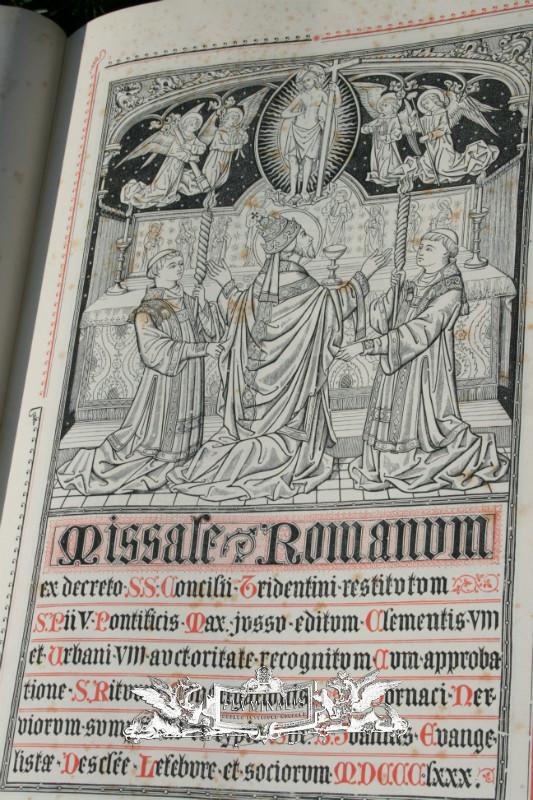 Missale Romanvm
ex decreto·S.S.Concilii·Tridentini·restitvtvm
S.Pii V·Pontificis·Max.jvssv·editvm·Clementis·VIII
et·Urbani·VIII·avctoritate·recognitvm·Cvm·approba
tione·S.Ritvv ornaci·Ner-
viorvm·svm S.Joannis·Evange-
listæ·Desclée·Lefebvre·et·sociorvm·MDCCC·lxxx·